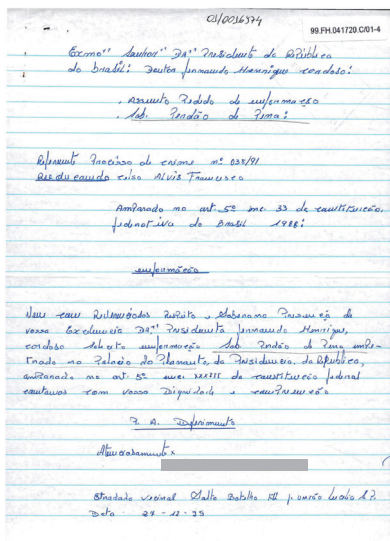 03/0036374
99.FH.041720.C/01-4
Exmoº Senhor DRº Presidente da República
do brasil: Doutor fernando Henrique cardoso:
. Assunto Pedido de informação
. Sob. Perdão de Pena:
Referente Processo de crime nº 038/91
Reeducando celso Alvis Francisco
AmParado no art. 5º inc. 33 da constituição.
federativa do Brasil 1988:
informação
Vem com Respeito e
vossa Excelencia DRº Presidente fernando Henrique,
cardoso informação Sob. Perdão de Pena
no Palacio do Planauto. da Presidencia. da Republica,
amParado no art. 5º inc: XXXIII da constituição federal
com vossa Dignidade e
P. A. Deferimento
Atenciosamente x
Estrada vecinal Salto Botelho
Data - 27-12-99